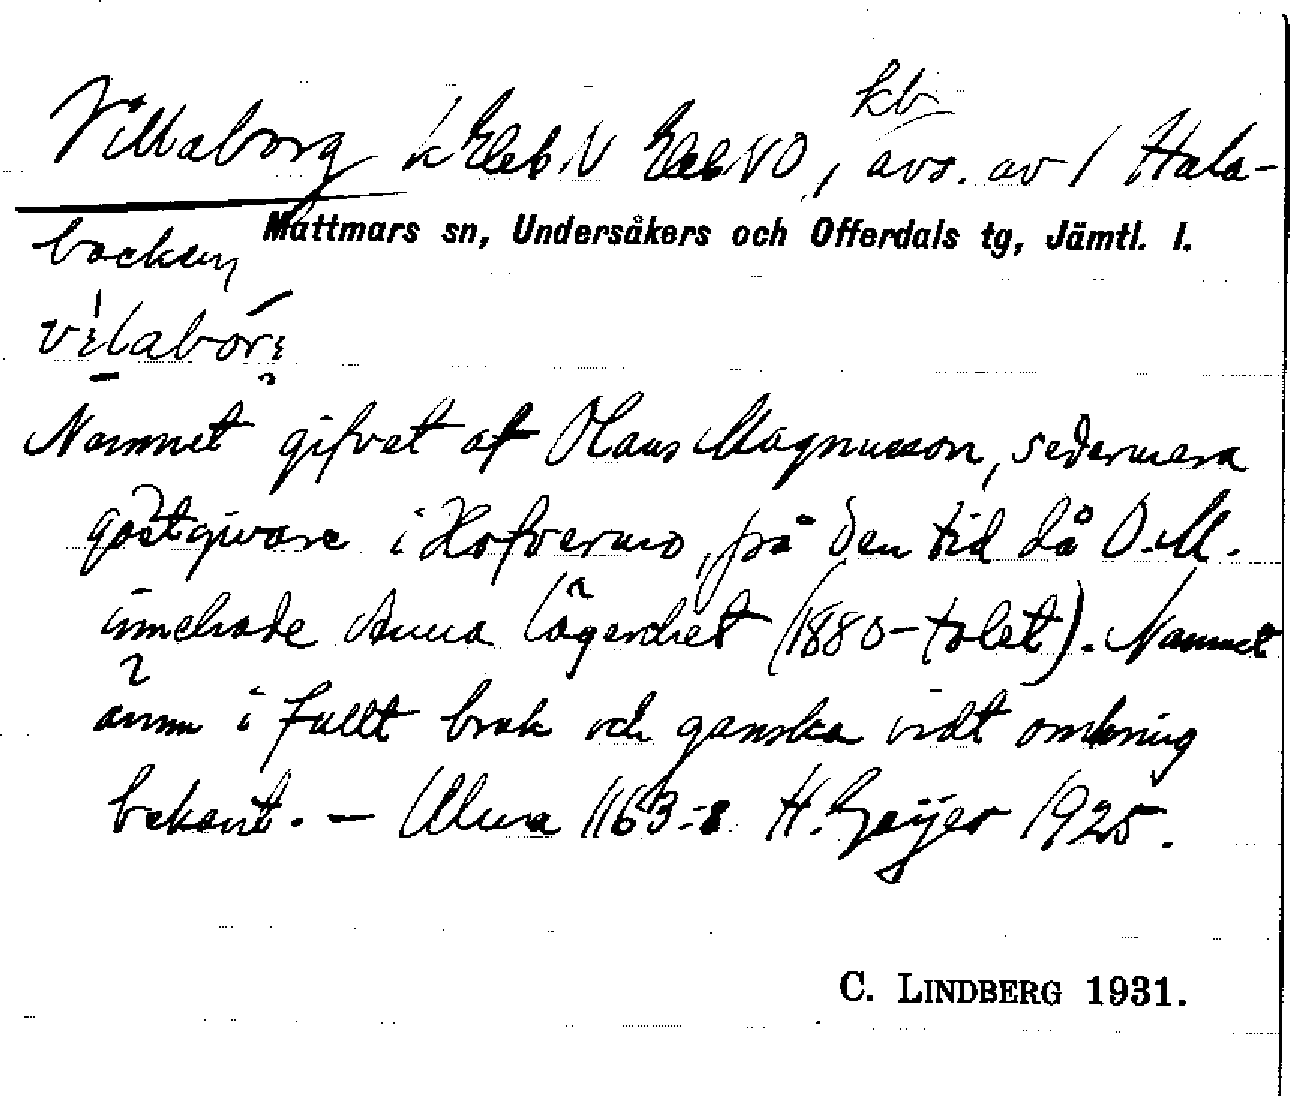 kb
Villaborg k Ekeb. N Ekeb NO, avs. av 1 Hala-
Mattmars sn, Undersåkers och Offerdals tg, Jämtl. l.
backen
Namnet gifvet af Olaus Magnusson, sedermera
gästgivare i Hofvermo, på den tid då O.M.
innehade Anna lägenhet (1880-talet). Namnet
ännu i fullt bruk och ganska vidt omkring
bekant. — Ulma 1163:8 H. Geijer 1925.
C. LINDBERG 1931.